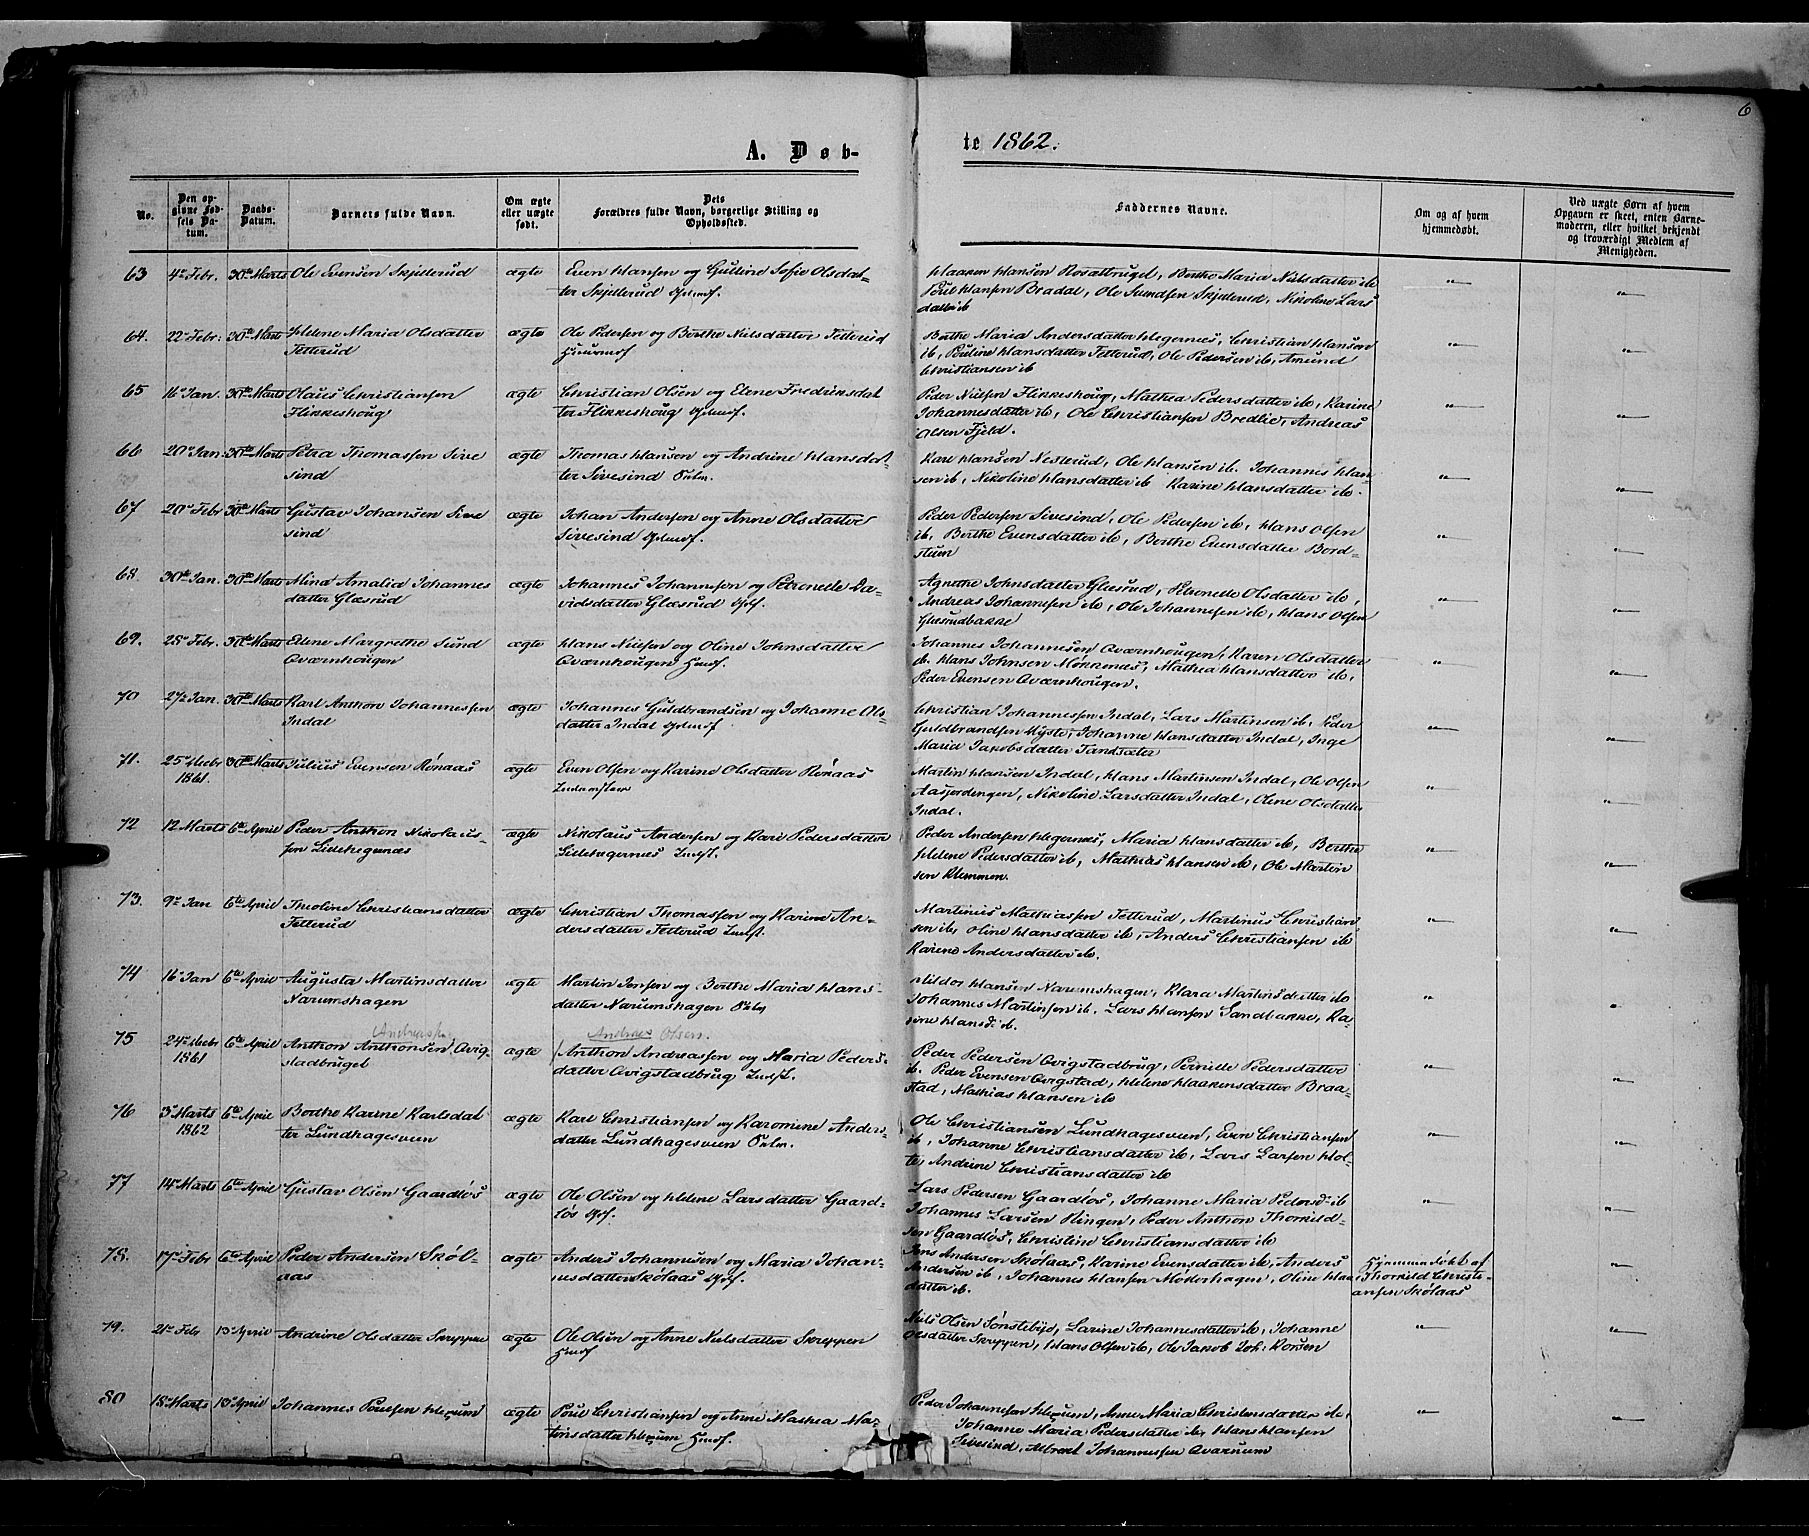 6
A. Døb-
te 1862.
No.
Den op-
givne Fød-
sels Da-
tum.
Daabs-
Datum.
Barnets fulde Navn.
Om ægte
eller uægte
født.
Dets
Forældres fulde Navn, borgerlige Stilling og
Opholdssted.
Faddernes Navne.
Om og af hvem
hjemmedøbt.
Ved uægte Børn af hvem
Opgaven er skeet, enten Barne-
moderen, eller hvilket bekjendt
og troværdigt Medlem af
Menigheden.
63 4de Febr. 30te Marts Ole Evensen Skjellerud ægte Even Hansen og Gulline Sofie Olsdat-
ter Skjellerud
Haaken Hansen Rosatbruget, Berthe Maria Nielsdatter ib
Poul Hansen Bradal, Ole Amundsen Skjellerud, Nikoline Lars
datter ib
64. 22de Febr: 30te Marts Helene Maria Olsdatter ægte Ole Pedersen og Berthe Nilsdatter Tetterud
Tetterud
Berthe Maria Andersdatter Hegernes, Christian Hansen
ib, Pouline Hansdatter Tetterud, Ole Pedersen ib, Amund
Christiansen ib
65 16de Jan. 30te Marts Olaus Christiansen ægte Christian Olsen og Elene Fredriksdat
Flikkeshoug ter Flikkeshoug
Peder Nielsen Flikkeshoug, Mathea Pedersdatter ib, Karine
Johannesdatter ib, Ole Christiansen Bredlie, Andreas
Olsen Fjeld.
66 20de Jan. 30te Marts Petra Thomassen Sive ægte Thomas Hansen og Andrine Hansdat
sind ter Sivesind
Karl Hansen Nesterud, Ole Hansen ib. Johannes Han-
sen ib, Nikoline Hansdatter ib Karine Hansdatter ib.
67 20de Febr 30te Marts Gustav Johansen Sive ægte Johan Andersen og Anne Olsdatter
sind Sivesind
Peder Pedersen Sivesind, Ole Pedersen ib, Hans Olsen
ib, Berthe Evensdatter ib, Berthe Evensdatter Bord-
68. 30te Jan. 30te Marts Mina Amalia Johannes ægte Johannes Johannesen og Petronelle Da-
datter Glæsrud vidsdatter Glæsrud
Agnethe Johnsdatter Glæsrud, Petronelle Olsdatter ib,
Andreas Johannesen ib, Ole Johannesen ib, Hans Olsen
Glæsrudbakke
69. 28de Febr. 30te Marts Elene Margrethe Lund ægte Hans Nielsen og Oline Johnsdatter
Qværnhougen Qværnhougen
Johannes Johannesen Qværnhougen, Karen Olsdatter
ib. Hans Johnsen Møkkenes, Mathea Hansdatter ib,
Peder Evensen Qværnhougen.
70 27de Jan. 30te Marts Karl Anthon Johannessen ægte Johannes Guldbrandsen og Johanne Ols-
Indal datter Indal
Christian Johannessen Indal, Lars Martinsen ib, Peder
Guldbrandsen Myste, Johanne Hansdatter Indal, Inge
Maria Jakobsdatter Tandsæter
71. 25de Decbr 30te Marts Julius Evensen Rønaas ægte Even Olsen og Karine Olsdatter Rønaas
1861.
Martin Hansen Indal, Hans Martinsen Indal, Ole Olsen
Aasjordengen, Nikoline Larsdatter Indal, Oline Olsdatter
Indal.
72 12 Marts 6te April Peder Anthon Nikolaus- ægte Nikolaus Andersen og Kari Pedersdatter
sen Lillehegernæs Lillehegernes Indst.
Peder Andersen Hegernes, Maria Hansdatter ib, Berthe
Helene Pedersdatter ib, Mathias Hansen ib, Ole Martin
sen Klemmen.
73. 9de Jan 6te April Theoline Christiansdatter ægte Christian Thomassen og Karine An-
Tetterud dersdatter Tetterud Indst.
Martinus Mathiassen Tetterud, Martinus Christian
sen ib, Oline Hansdatter ib, Anders Christiansen ib
Karine Andersdatter ib.
74 16de Jan 6te April Augusta Martinsdatter ægte Martin Jensen og Berthe Maria Hans-
Narumshagen datter Narumshagen
Hildor Hansen Narumshagen, Klara Martinsdatter ib
Johannes Martinsen ib. Lars Hansen Sandbakke, Ka-
rine Hansd: ib.
Andreassen Andreas Olsen.
75 24de Decbr 6te April Anthon Anthonsen Qvig ægte Anthon Andreassen og Maria Peders-
1861 stadbruget datter Qvigstadbrug Indst.
Peder Pedersen Qvigstadbrug, Pernille Pedersdatter
ib. Peder Evensen Qvigstad, Helene Haakensdatter Braa-
stad, Mathias Hansen ib
76 3de Marts 6te April Berthe Karine Karlsdat ægte Karl Christiansen og Karomine Anders
1862 ter Lundhagesveen datter Lundhagesveen
Ole Christiansen Lundhagesveen, Even Christiansen
ib, Johanne Christiansdatter ib, Lars Larsen Hol-
te, Andrine Christiansdatter ib
77 14de Marts 6te April Gustav Olsen Gaardløs ægte Ole Olsen og Helene Larsdatter Gaard-
løs
Lars Pedersen Gaardløs, Johanne Maria Pedersd: ib
Johannes Larsen Ringen, Peder Anthon Thorkild-
sen Gaardløs, Christine Christiansdatter ib
78. 17de Febr 6te April Peder Andersen Skøl- ægte Anders Johannesen og Maria Johan-
aas nesdatter Skølaas
Jens Andersen Skølaas, Karine Evensdatter ib, Anders
Andersen ib, Johannes Hansen Møderhagen, Oline Hans
datter ib.
Hjemmedøbt af
Thorkild Christi-
ansen Skølaas
79. 21de Febr 13de April Andrine Olsdatter Skreppen ægte Ole Olsen og Anne Nielsdatter Skreppen
Niels Olsen Sønsteby, Larine Johannesdatter ib, Johanne
Olsdatter Skreppen, Hans Olsen ib, Ole Jakob Joh: Korsen
80 18de Marts 13de April Johannes Poulsen Hexum ægte Poul Christiansen og Anne Mathea Ma-
tinsdatter Hexum
Peder Johannesen Hexum, Anne Maria Christensdatter ib,
Johanne Maria Pedersdatter ib, Hans Hansen
Sivesind, Albert Johannesen Qvarnum